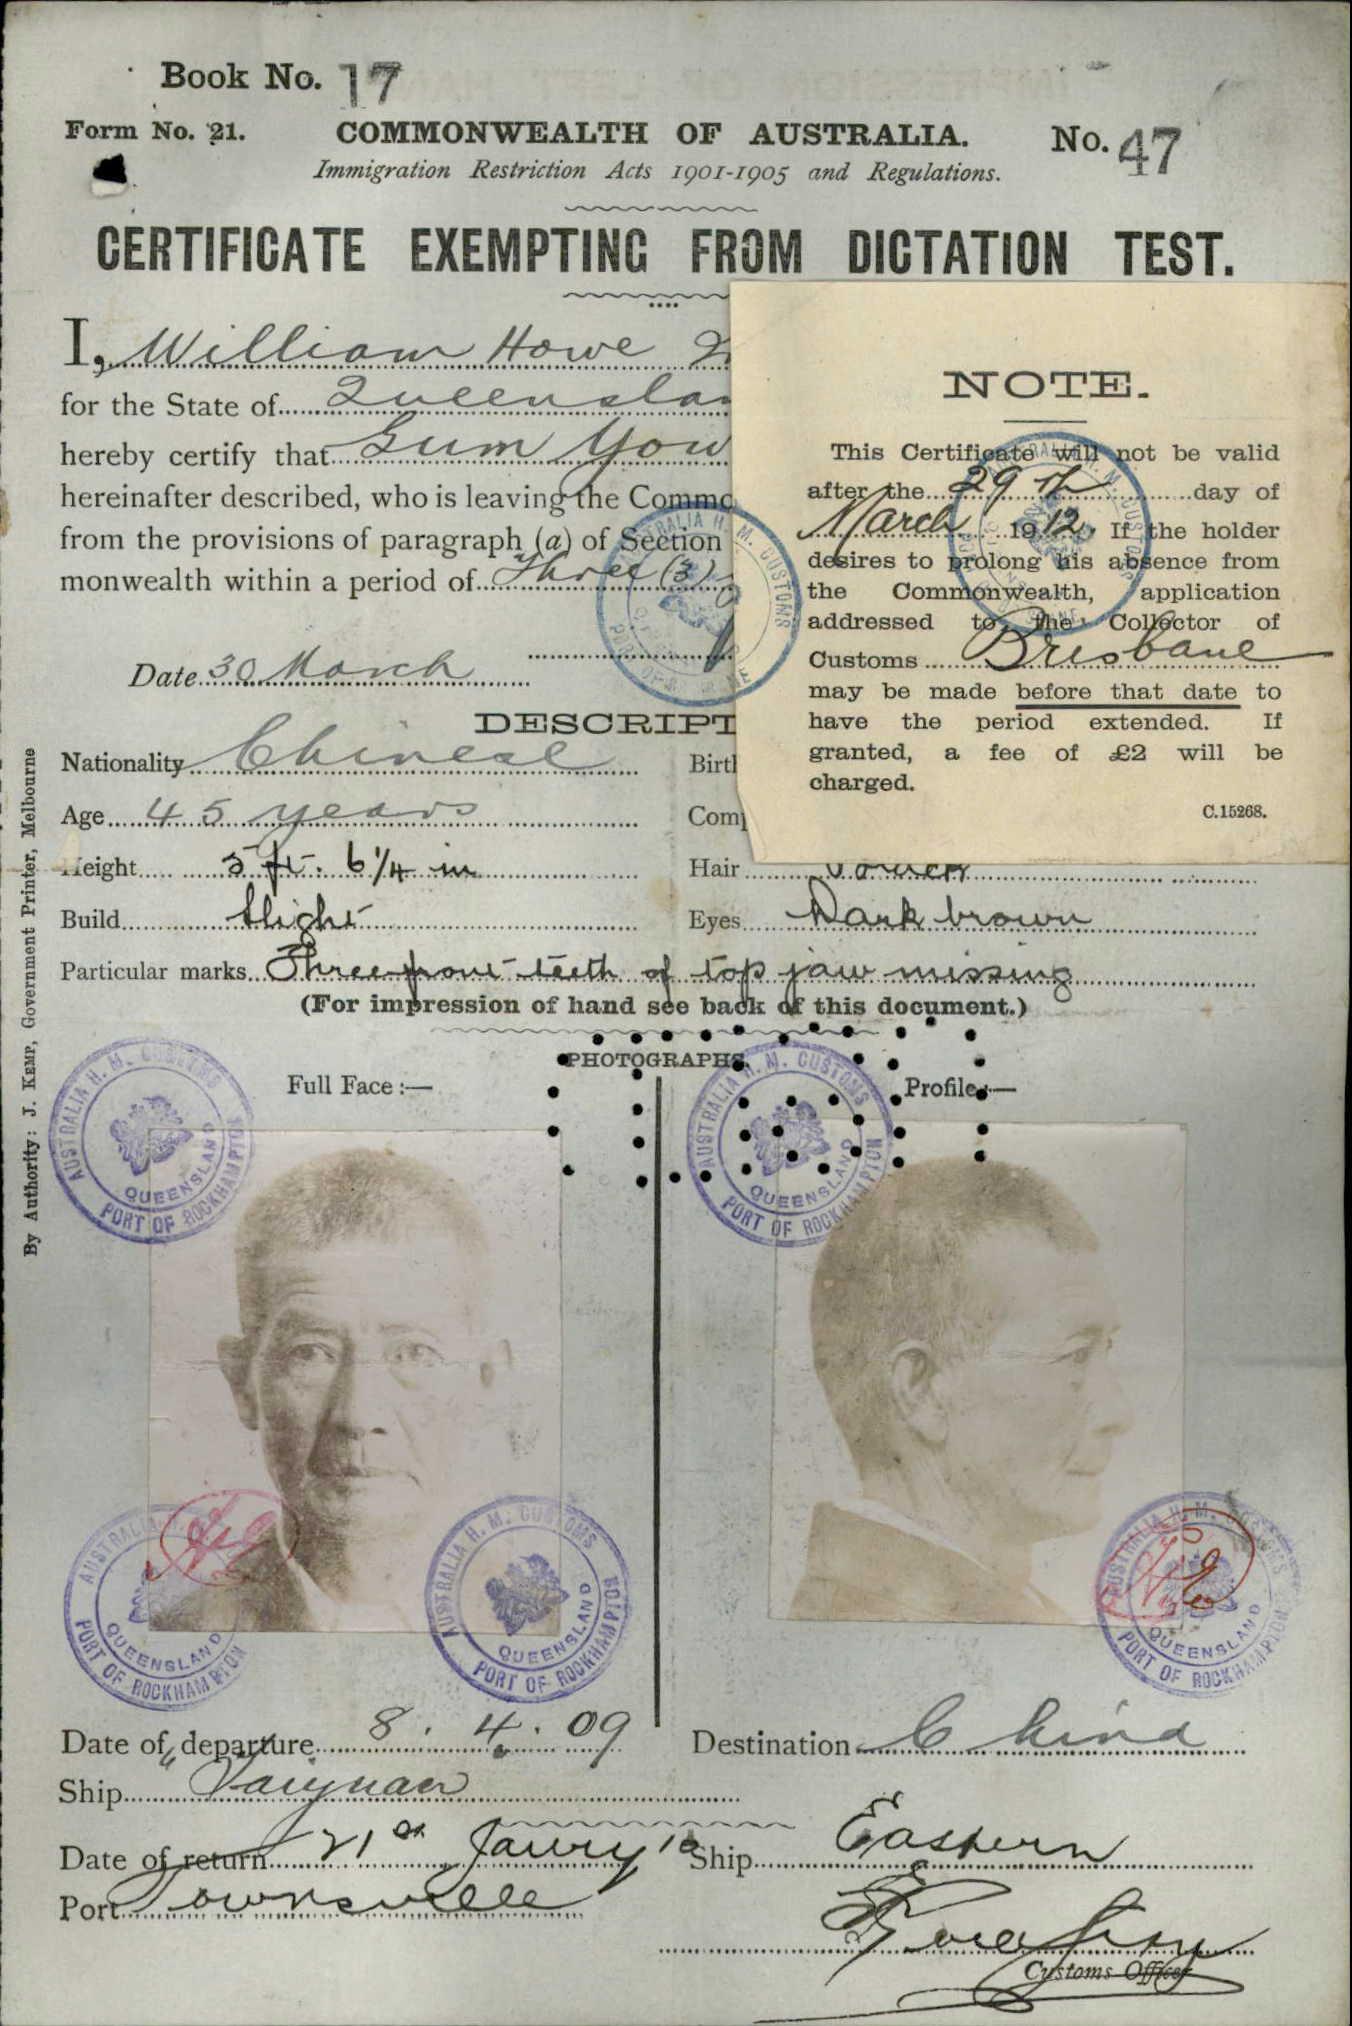 Book No. 17
Form No. 21.
COMMONWEALTH OF AUSTRALIA.
No. 47
Immigration Restriction Acts 1901-1905 and Regulations.
CERTIFICATE EXEMPTING FROM DICTATION TEST.
I, William Howe
for the State of Queenslan
hereby certify that Gum You
hereinafter described, who is leaving the Commo
from the provisions of paragraph (a) of Section
monwealth within a period of Three (3)
Date 30 March
DESCRIPT
Nationality Chinese
Birth
Age 45 years
Com
Height 5 ft. 6 1/4 in
Hair
Build Slight
Eyes Dark brown
Particular marks Three front teeth of top jaw missing
(For impression of hand see back of this document.)
PHOTOGRAPHS.
Full Face :—
Profile :—
NOTE.
This Certificate will not be valid
after the 29th day of
March 1912. If the holder
desires to prolong his absence from
the Commonwealth, application
addressed to the Collector of
Customs Brisbane
may be made before that date to
have the period extended. If
granted, a fee of £2 will be
charged.
C.15268.
By Authority: J. KEMP, Government Printer, Melbourne
AUSTRALIA H. M. CUSTOMS
QUEENSLAND
PORT OF ROCKHAMPTON
AUSTRALIA H. M. CUSTOMS
QUEENSLAND
PORT OF ROCKHAMPTON
AUSTRALIA
QUEENSLAND
PORT OF ROCKHAMPTON
AUSTRALIA H. M. CUSTOMS
QUEENSLAND
PORT OF ROCKHAMPTON
AUSTRALIA H. M. CUSTOMS
QUEENSLAND
PORT OF ROCKHAMPTON
AUSTRALIA H. M. CUSTOMS
Date of departure 8. 4. 09
Destination China
Ship "Taiyuan
Date of return 21st Janry 10
Ship Eastern
Port Townsville
Customs Officer